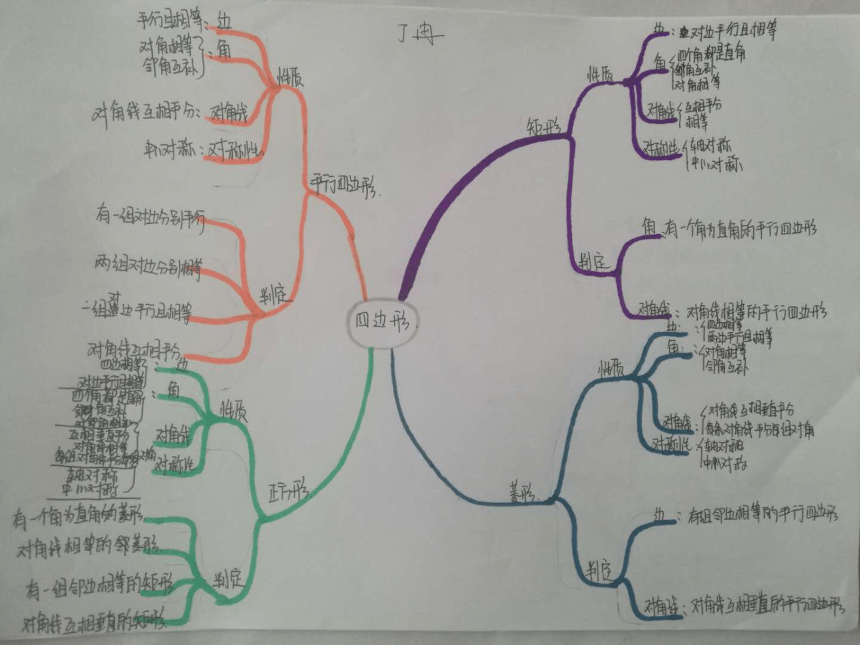 丁冉
四边形
平行四边形
性质
平行且相等:边
对角相等
邻角互补
:角
对角线互相平分:对角线
中心对称:对称性
判定
有一组对边分别平行
两组对边分别相等
一组对边平行且相等
对角线互相平分
矩形
性质
边:对边平行且相等
角
四个角都是直角
邻角互补
对角相等
对角线
互相平分
相等
对称性
轴对称
中心对称
判定
角:有一个角为直角的平行四边形
对角线:对角线相等的平行四边形
正方形
性质
四边相等
对边平行且相等
:边
四个角都是直角
邻角互补
对角相等
角
互相垂直平分
对角线相等
对角线
轴对称
中心对称
对称性
判定
有一个角为直角的菱形
对角线相等的邻菱形
有一组邻边相等的矩形
对角线互相垂直的矩形
菱形
性质
边:
四边相等
两边平行且相等
角:
对角相等
邻角互补
对角线:
对角线互相垂直平分
每条对角线平分每组对角
对称性:
轴对称
中心对称
判定
边:有组邻边相等的平行四边形
对角线:对角线互相垂直的平行四边形